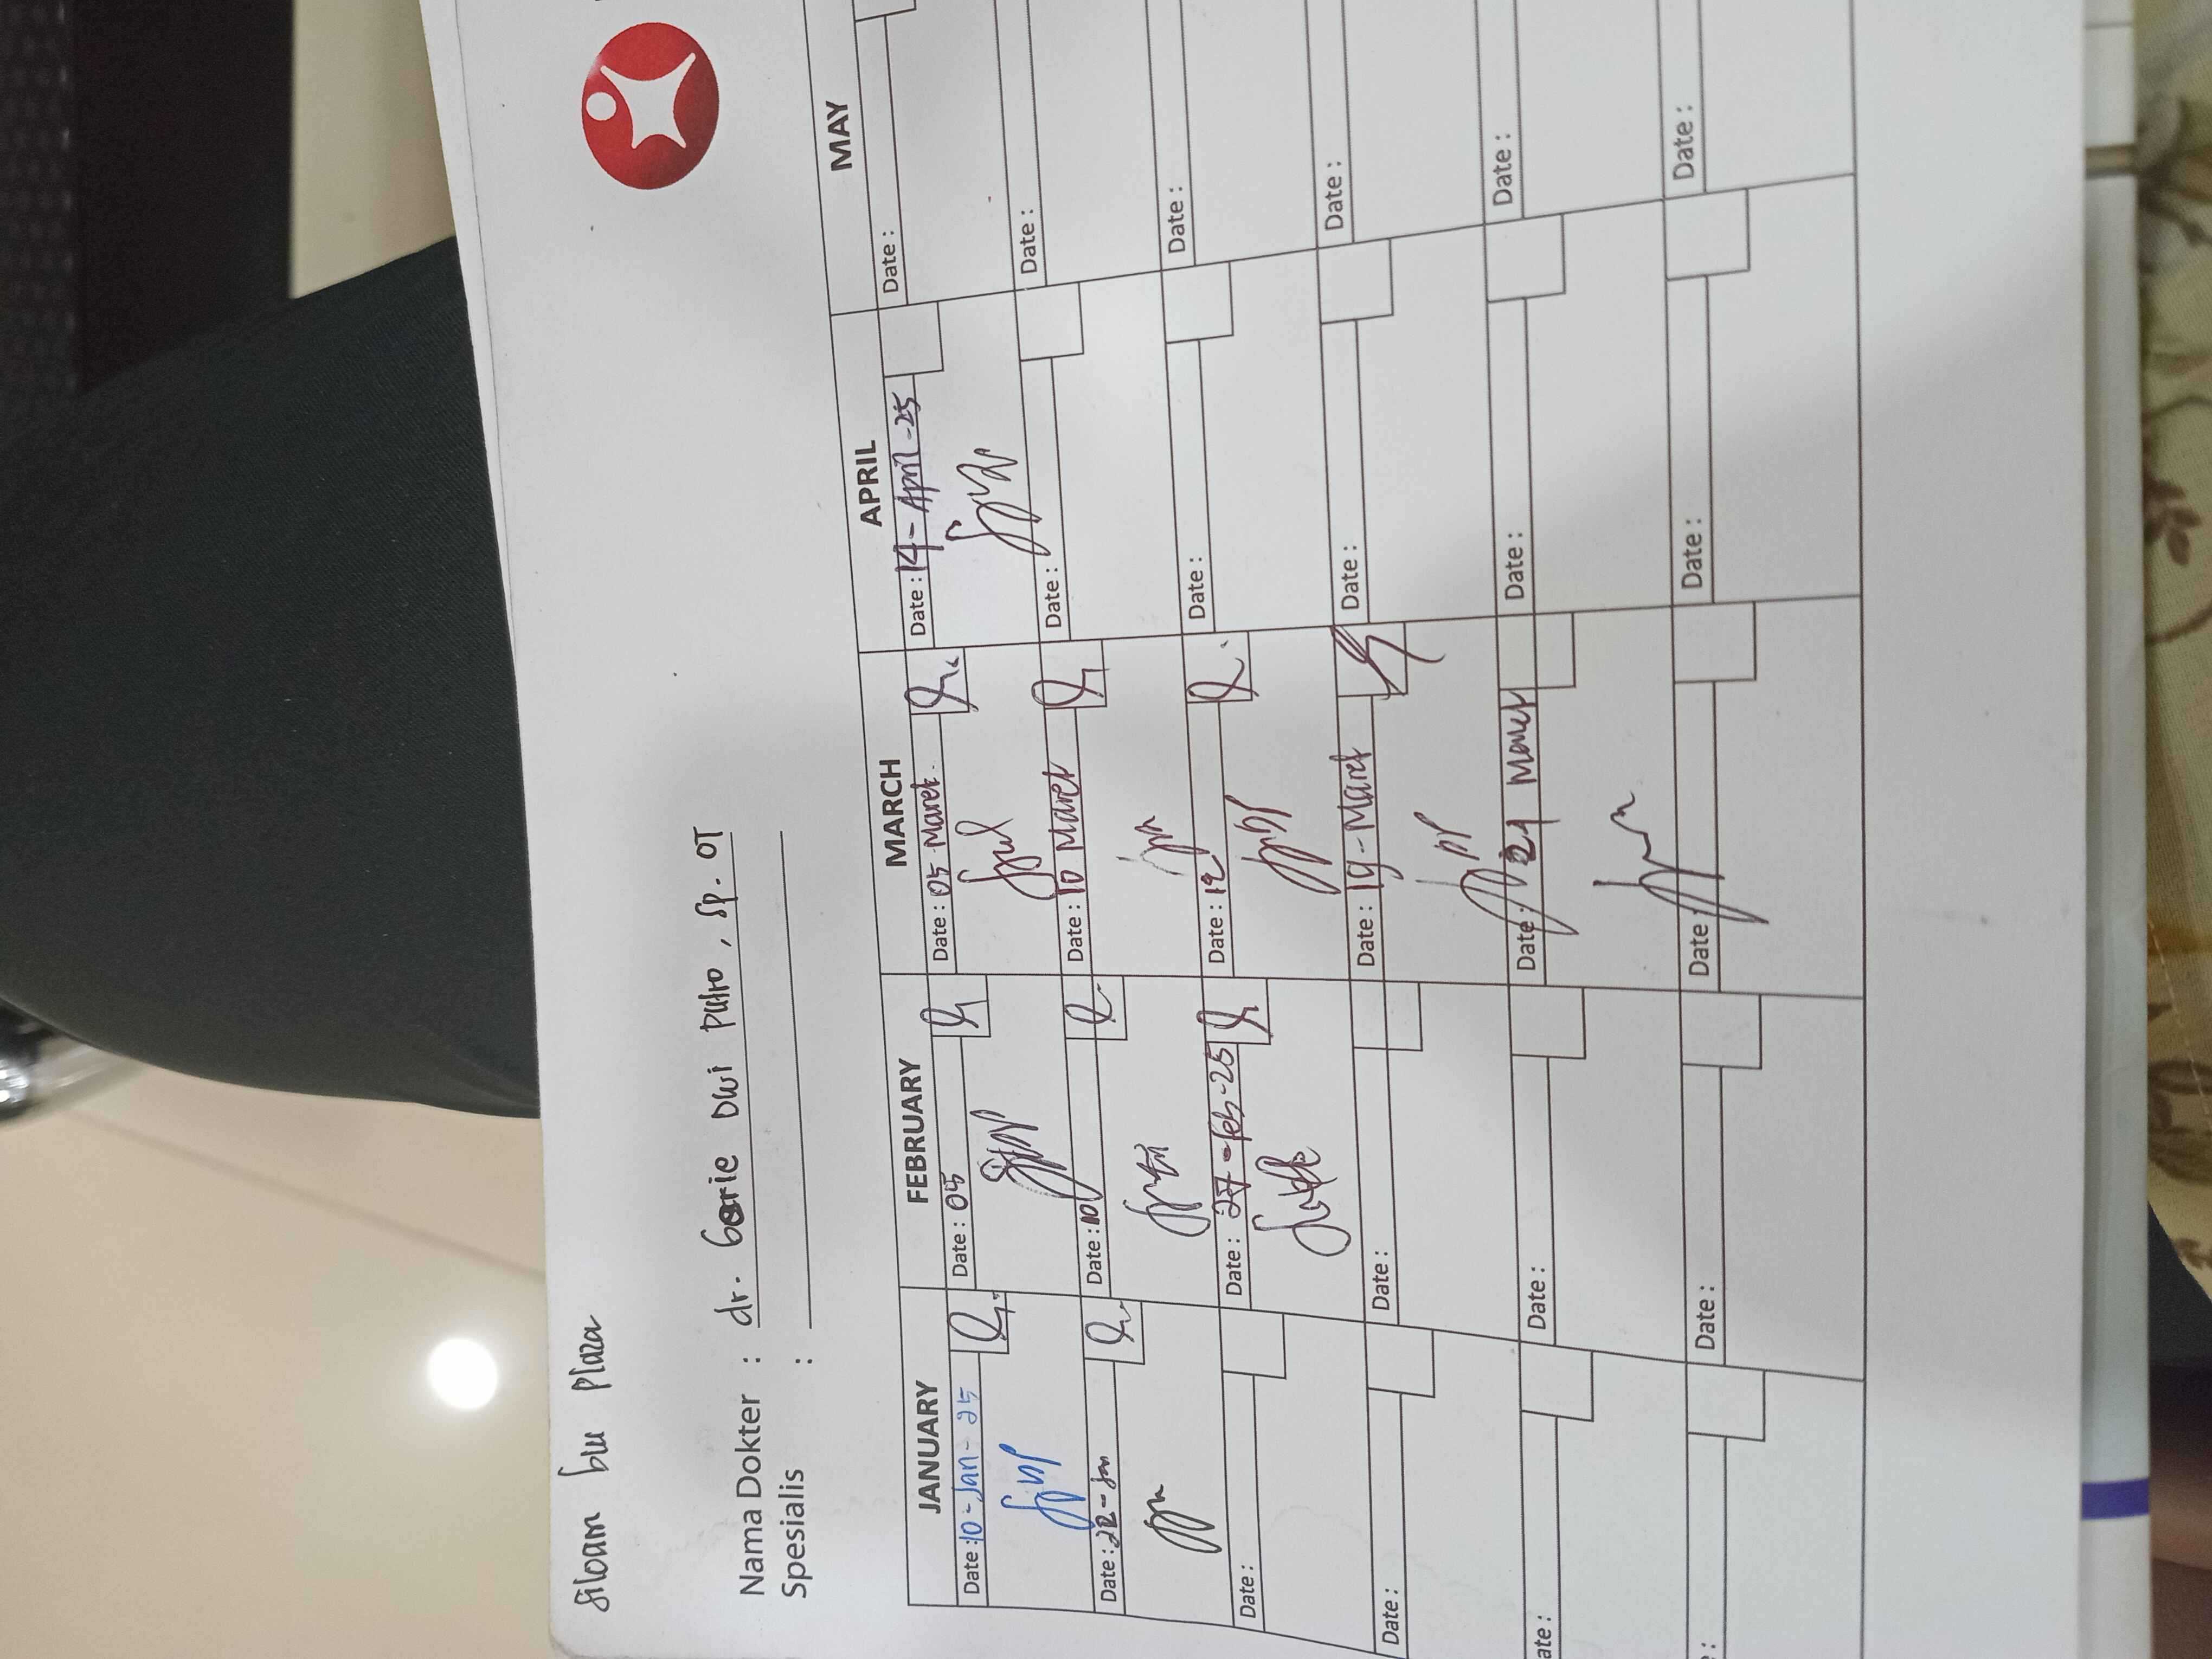 Siloam blu plaza
Nama Dokter : dr. Gerie Dwi Putro, Sp. OT
Spesialis :
JANUARY FEBRUARY MARCH APRIL MAY
Date : 10 - Jan - 25 Date : 05 Date : 05 - Maret. Date : 14 - April - 25 Date :
Date : 22 - Jan Date : 10 Date : 10 Maret Date : Date :
Date : Date : 27 - feb - 25 Date : 12 Date : Date :
Date : Date : Date : 19 - Maret Date : Date :
ate : Date : Date : Maret Date : Date :
: Date : Date Date : Date :